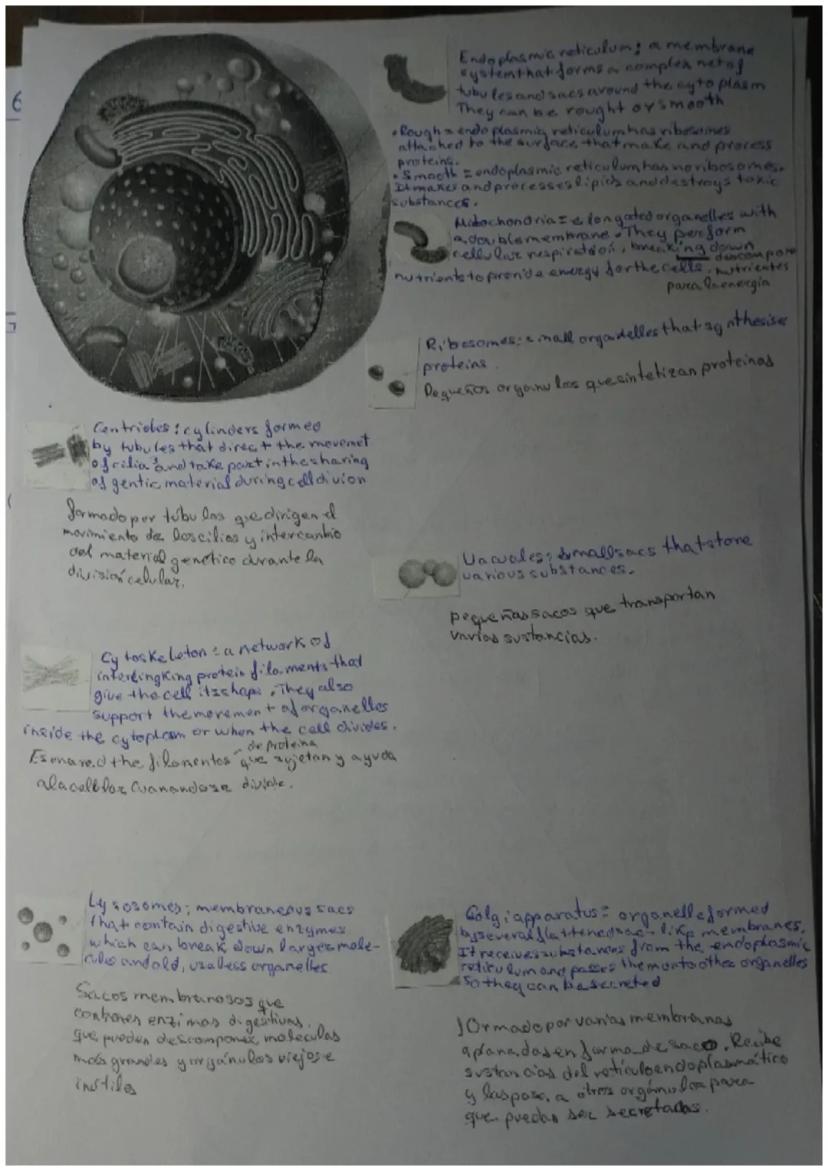 6
Endoplasmic reticulum: a membrane
system that forms a complex net of
tubules and sacs around the cytoplasm
They can be rought or smooth
• Rough = endoplasmic reticulum has ribosomes
attached to the surface that make and process
proteins.
• Smooth = endoplasmic reticulum has no ribosomes.
It makes and processes lipids and destroys toxic
substances.
Mitochondria = elongated organelles with
a double membrane. They perform
cellular respiration, breaking down
nutrients to provide energy for the cells.
descompone
nutrientes
para la energía
Ribosomes: small organdelles that synthesise
proteins.
Pequeños organulos que sintetizan proteinas
Centrioles: cylinders formed
by tubules that direct the movemet
of cilia and take part in the sharing
of gentic material during cell divion
formado por túbulos que dirigen el
movimiento de los cilios y intercambio
del material genético durante la
división celular.
Vacuoles: small sacs that store
various substances.
pequeños sacos que transportan
varias sustancias.
Cytoskeleton: a network of
interlingking protein filaments that
give the cell its shape. They also
support the movement of organelles
inside the cytoplasm or when the cell divides.
de proteína
Es una red the filamentos que sujetan y ayuda
a la celular cuanando se divide.
Lysosomes: membraneous sacs
that contain digestive enzymes
which can break down larges mole-
cules and old, useless organelles
Sacos membranosos que
contienes enzimas digestivas.
que pueden descomponer moleculas
más grandes y orgánulos viejos e
inútiles
Golgi apparatus = organelle formed
by several flattened sac-like membranes.
It receives substances from the endoplasmic
reticulum and passes them onto other organelles
so they can be secreted
formado por varias membranas
aplanadas en forma de saco. Recibe
sustancias del retículo endoplasmático
y las pasa a otros orgánulos para
que puedan ser secretadas.